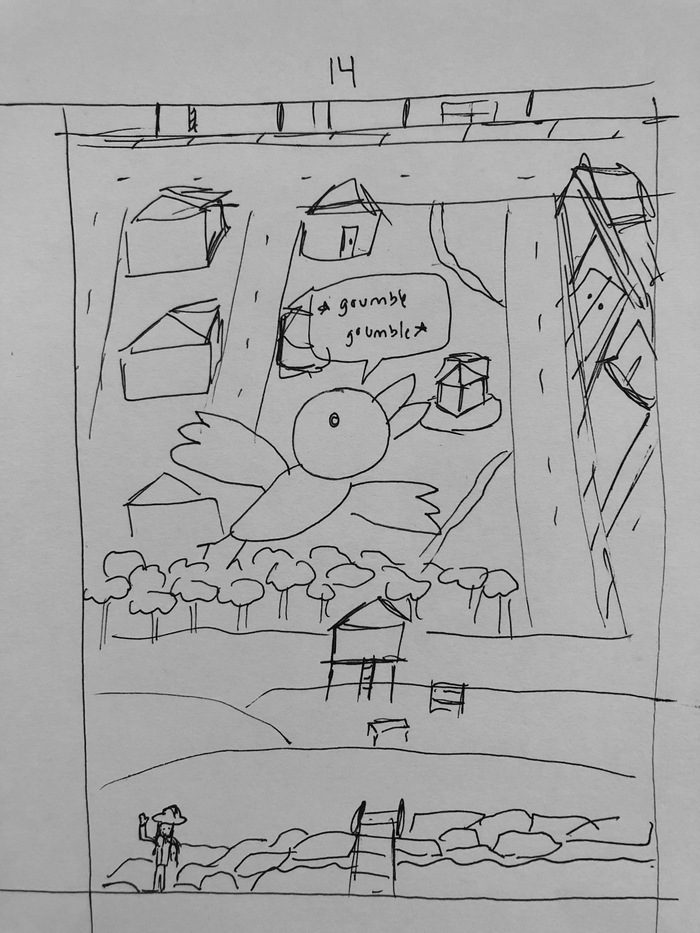 14
* grumble
grumble *